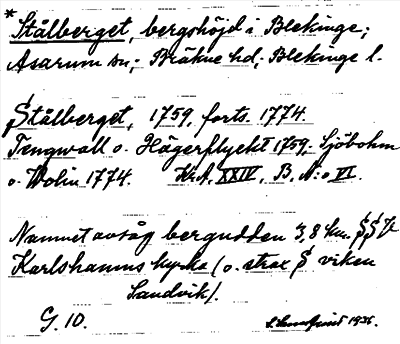 * Stålberget, bergshöjd i Blekinge;
Asarum sn; Bräkne hd; Blekinge l.
Stålberget, 1759, forts. 1774.
Tengwall o. Hägerflyckt 1759, Sjöbohm
o. Wolin 1774. Kr.A. XXIV, B, N:o VI.
Namnet avsåg bergudden 3,8 km.
Karlshamns kyrka (o. strax viken
Sandvik).
G. 10. 1936.